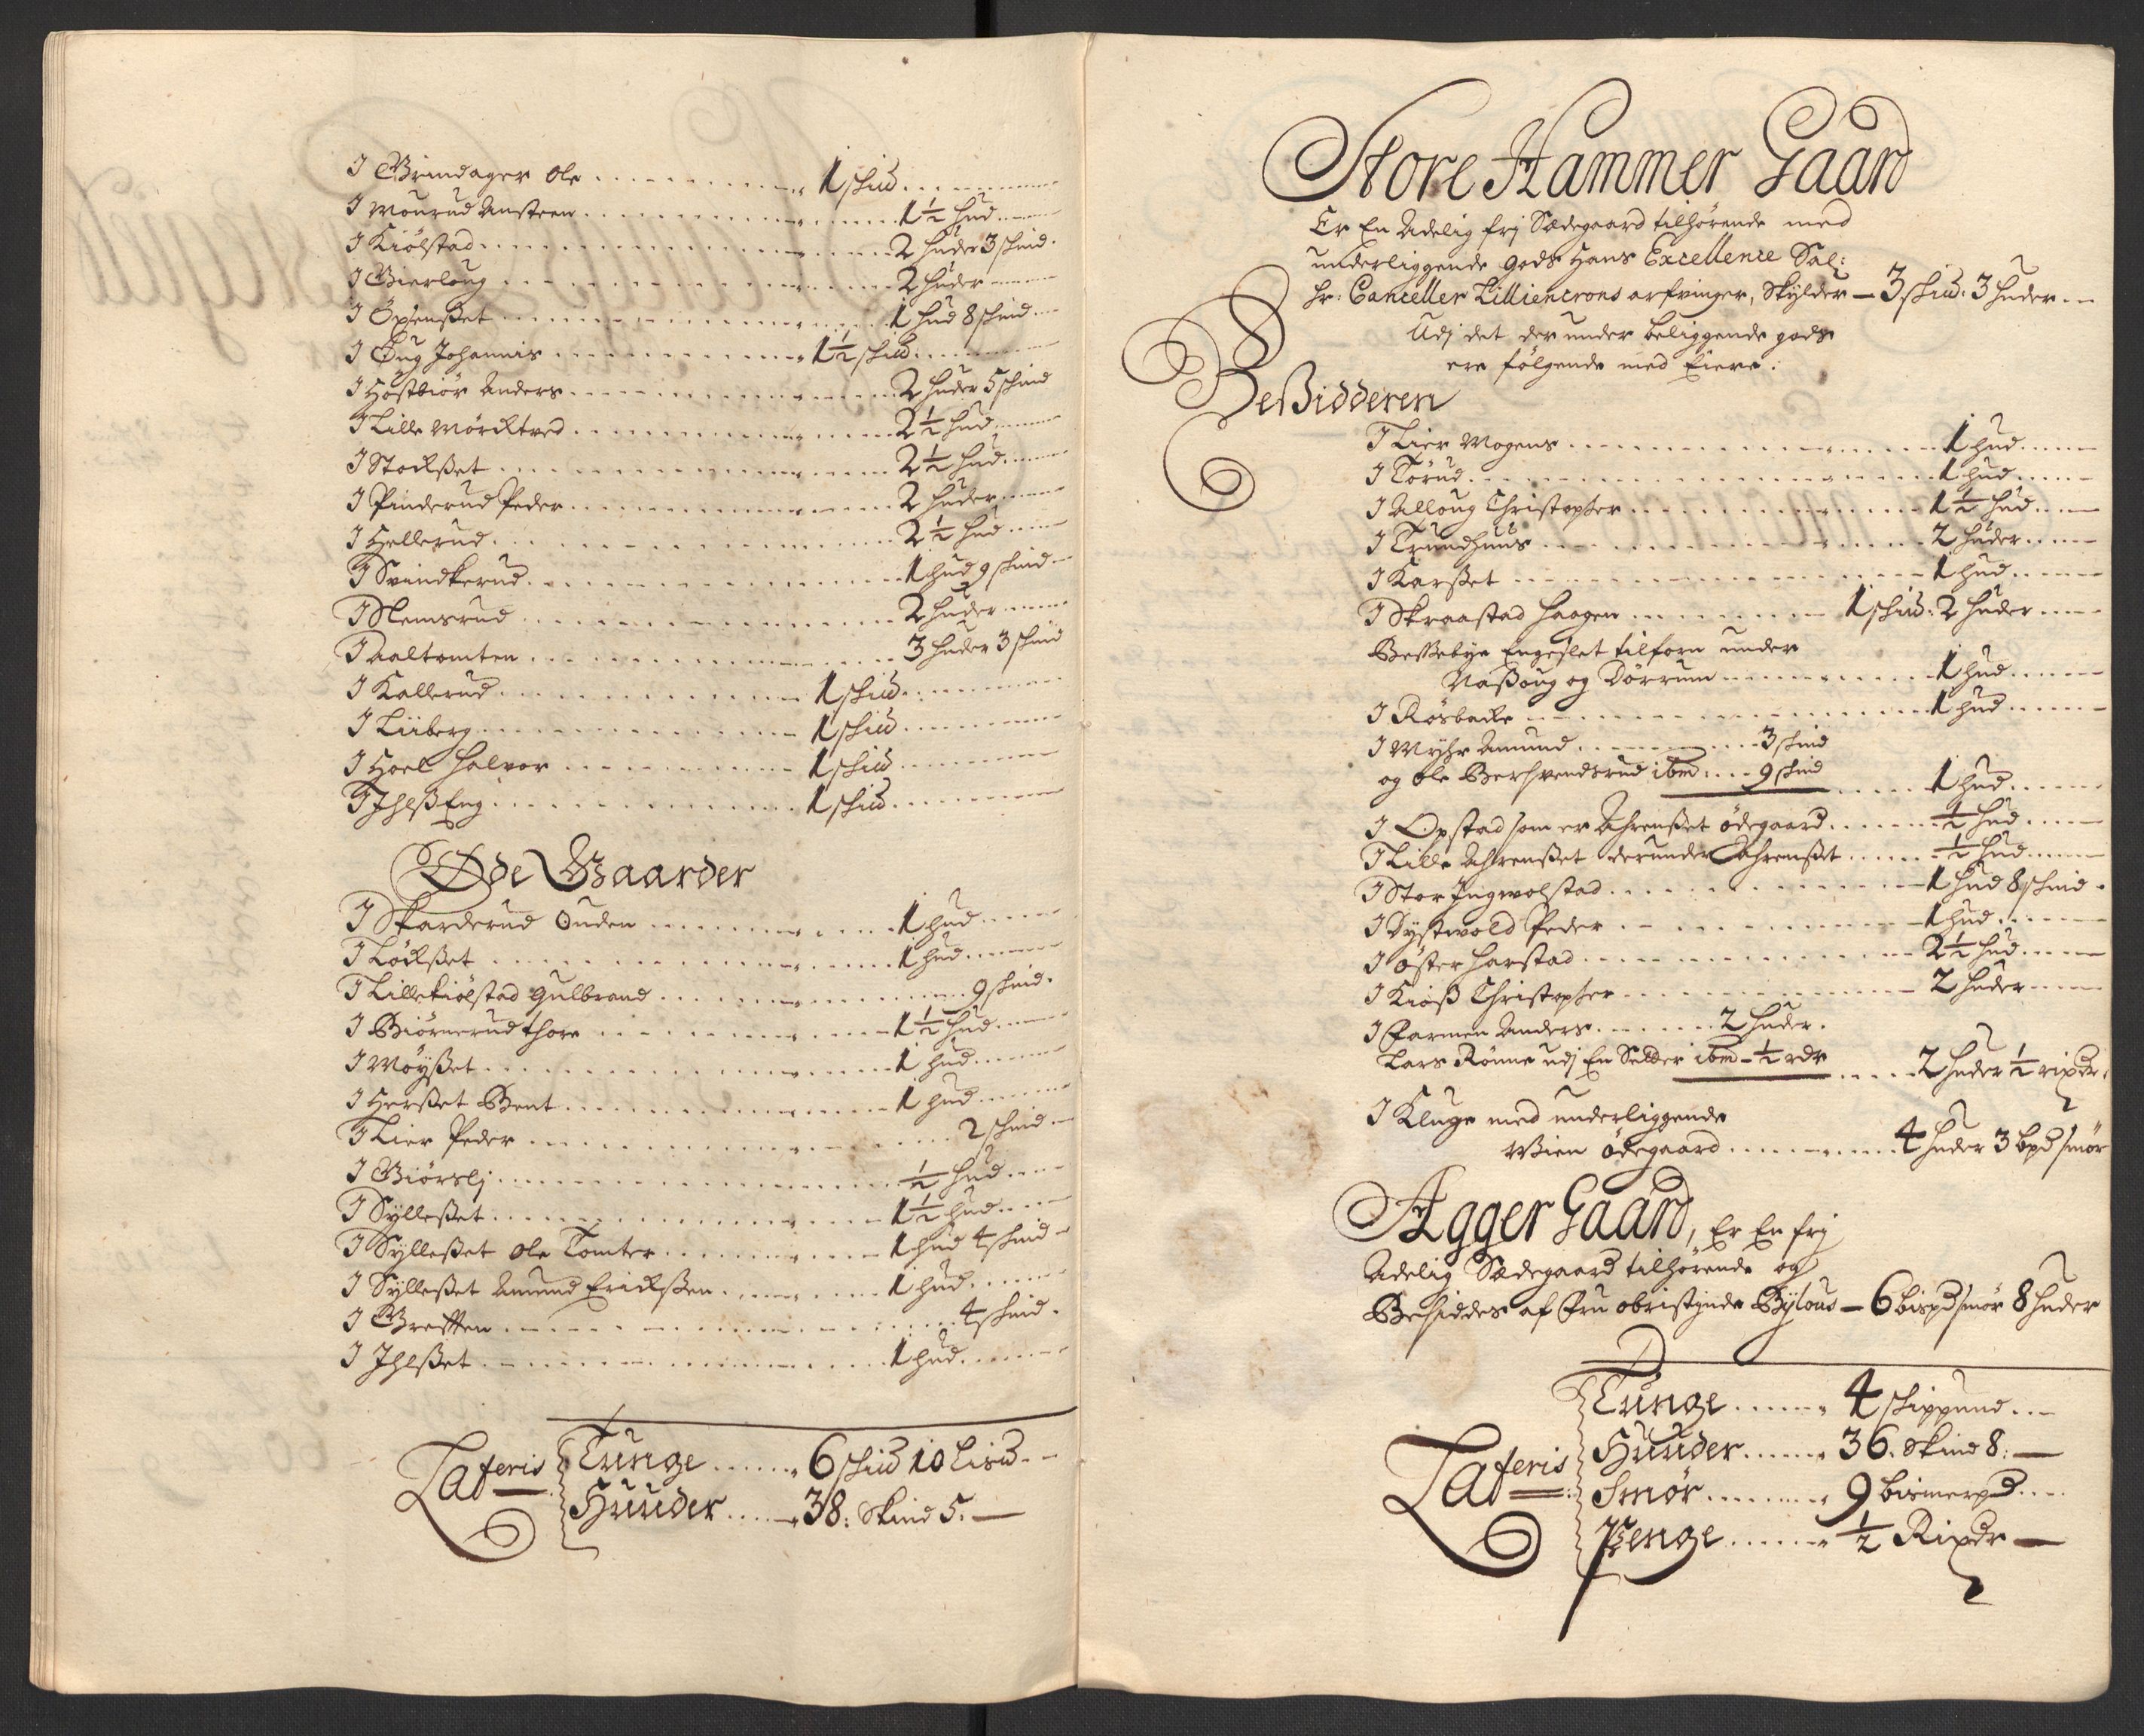 I Grindager Ole 1 ski℔
I Mourud Ansteen 1½ hud
I Kiölstad 2 huder 3 skind
I Gierloug 2 huder
I Opsenßet 1 hud 8 skind
I Oug Johannis 1½ ski℔
I Höstbiör Anders 2 huder 5 skind
I Lille Mörcktved 2½ hud
I Stockßet 2½ hud
I Pinderud Peder 2 huder
I Hellerud 2½ hud
I Svindkerud 1 hud 9 skind
I Nemsrud 2 huder
I Aaltomten 3 huder 3 skind
I Kallerud 1 ski℔
I Liiberg 1 ski℔
I Hoel Halvor 1 ski℔
I IhlßEng 1 ski℔
Øde Gaarder
I Skarderud Ouden 1 hud
I Löckßet 1 hud
I Lillekiölstad Gulbrand 9 skind
I Biörnerud Thore 1½ hud
I Möyßet 1 hud
I Herßet Bent 1 hud
I Lier Peder 2 skind
I Giörslj ½ hud
I Sylleßet 1½ hud
I Sylleßet Ole Tomter 1 hud 4 skind
I Sylleßet Amund Erickßen 1 hud
I Gretten 4 skind
I Ihlßet 1 hud
Lateris Tunge 6 ski℔ 10 Lis℔
Huuder 38: Skind 5.
Store Hammer Gaard
Er En Adelig frj Sædegaard tilhørende med
underliggende gods Hans Excellence Sal:
Hr: Canceller Lilliencrons arfvinger, Skylder — 3 ski℔: 3 huder
Udj det der under beliggende gods
ere følgende med Eiere:
Beßidderen
I Lier Mogens 1 hud
I Törud 1 hud
I Alloug Christopher 1½ hud
I Trundhuus 2 huder
I Karßet 1 hud
I Skraastad Haagen 1 ski℔: 2 huder
Beßebye Engeslet tilforn under
Naßoug og Dörrum 1 hud
I Rösbacke 1 hud
I Myhr Amund 3 skind
og Ole Berhvendsrud ibm: 9 skind 1 hud
I Opstad som er Ahrenßet ödegaard ½ hud
I Lille Ahrenßet derunder Ahrenßet ½ hud
I Stor Ingwolstad 1 hud 8 skind
I Dystwold Peder 1 hud
I Öster Harstad 2½ hud
I Kiöß Christopher 2 huder
I Farmen Anders 2 huder.
Lars Rönne udj En ibm – ½ rdr 2 huder ½ rixdr.
I Kluge med underliggende
Wien ödegaard 4 huder 3 bpd smör
Agger Gaard, Er En frj
Adelig Sædegaard tilhørende og
Besiddes af Fru obristinde Bylous — 6 bispd smör 8 huder
Lateris Tunge 4 skippund
Huuder 36. Skind 8:
Smör 9 bismerpd
Penge ½ Rixdr